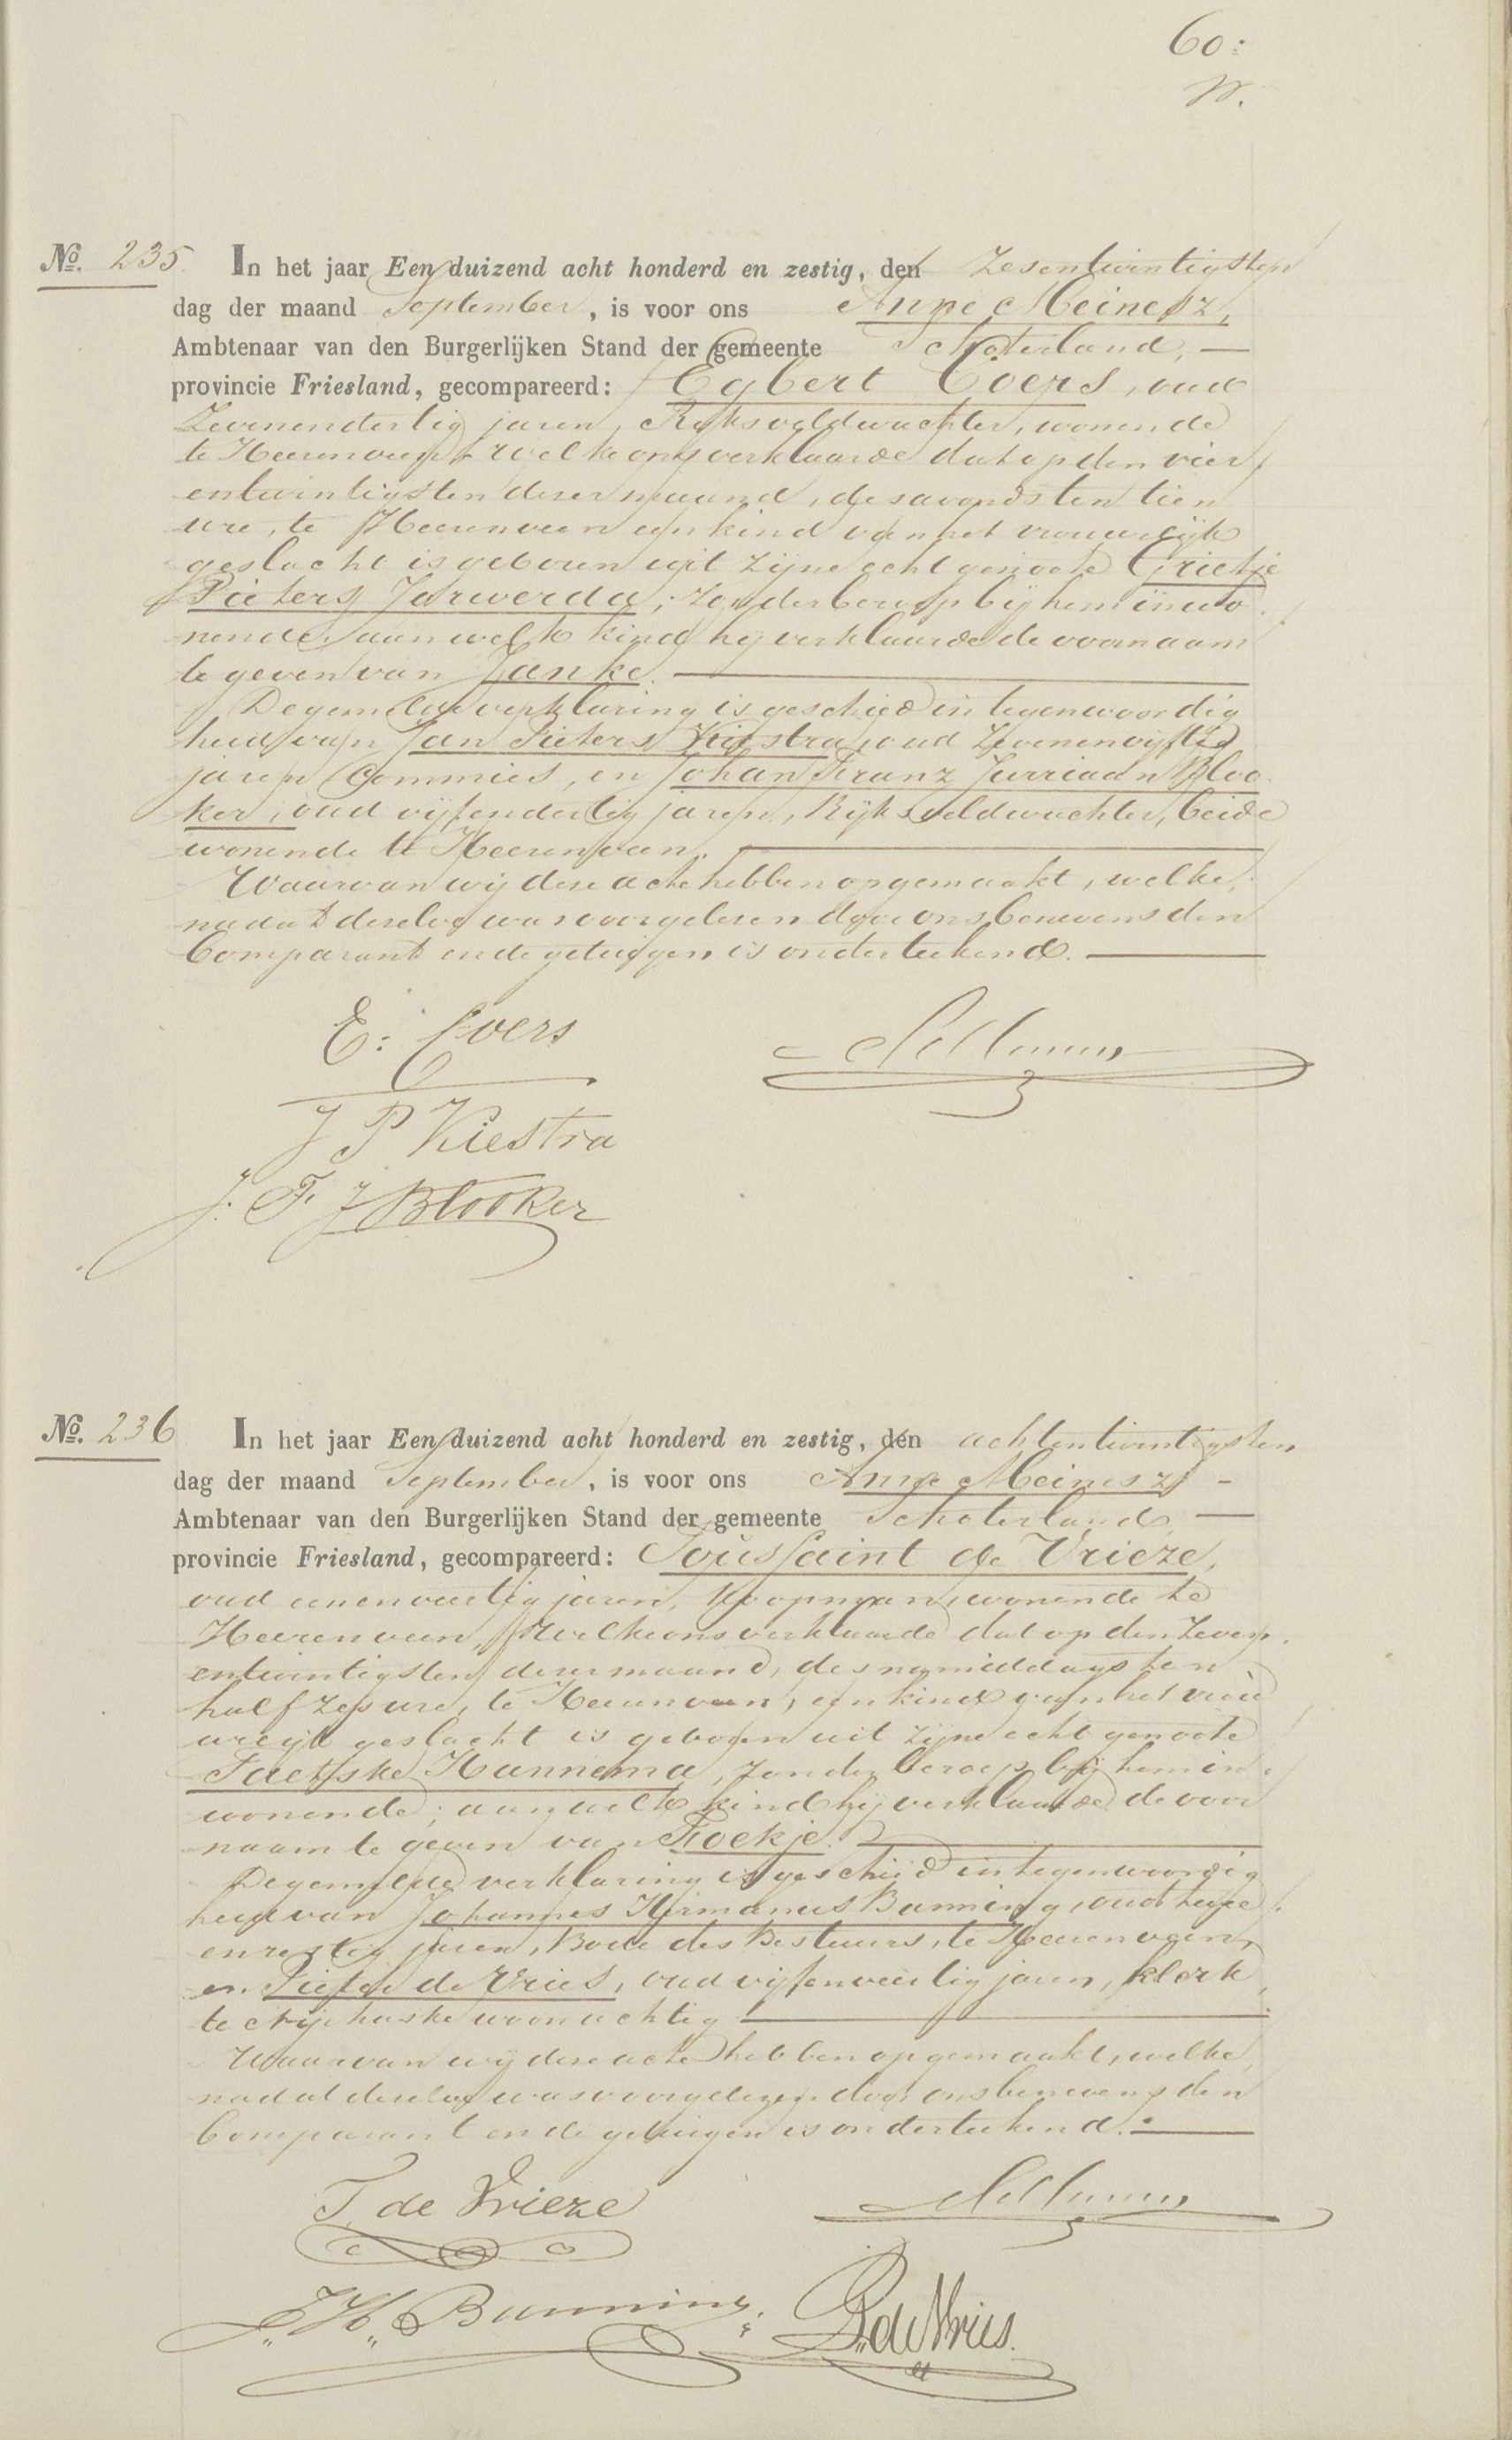 60:
No. 235 In het jaar Een duizend acht honderd en zestig, den Zesentwintigsten
dag der maand September, is voor ons Anne Meinesz,
Ambtenaar van den Burgerlijken Stand der gemeente Schoterland, —
provincie Friesland, gecompareerd: Egbert Coers, oud
Zevenendertig jaren, Rijksveldwachter, wonende
te Heerenveen, welke ons verklaarde dat op den vier
entwintigsten dezer maand, des avonds ten tien
ure, te Heerenveen een kind van het vrouwelijk
geslacht is geboren uit zijne echtgenoote Grietje
Pieters Jarwerda, zonder beroep bij hem inwo
nende, aan welk kind hij verklaarde de voornaam
te geven van Janke. —
De gemelde verklaring is geschied in tegenwoordig
heid van Jan Pieters Kiestra, oud Zevenenvijftig
jaren Commies, en Johan Franz Jurriaan Bloo
ker, oud vijfendertig jaren, Rijksveldwachter, beide
wonende te Heerenveen. —
Waarvan wij deze acte hebben opgemaakt, welke,
nadat dezelve was voorgelezen door ons benevens den
Comparant en de getuigen is onderteekend. —
E: Coers
J P Kiestra
J. F. J Blooker
No. 236 In het jaar Een duizend acht honderd en zestig, den achtentwintigsten
dag der maand September, is voor ons Anne Meinesz, -
Ambtenaar van den Burgerlijken Stand der gemeente Schoterland, —
provincie Friesland, gecompareerd: Toussaint de Vrieze,
oud eenenveertig jaren, Koopman, wonende te
Heerenveen, welke ons verklaarde dat op den Zeven
entwintigsten dezer maand, des namiddags ten
half zes ure, te Heerenveen, een kind van het vrou
welijk geslacht is geboren uit zijne echtgenoote
Faetske Hannema, zonder beroep bij hem in
wonende; aan welk kind hij verklaarde de voor
naam te geven van Froekje. —
De gemelde verklaring is geschied in tegenwoordig
heid van Johannes Hermanus Banning, oud twee
enzestig jaren, Bode des Bestuurs, te Heerenveen,
en Pieter de Vries, oud vijfenveertig jaren, klerk,
te Nijehaske woonachtig —
Waarvan wij deze acte hebben opgemaakt, welke,
nadat dezelve was voorgelezen door ons benevens den
Comparant en de getuigen is onderteekend. —
T. de Vrieze
J. H. Banning. P. de Vries.